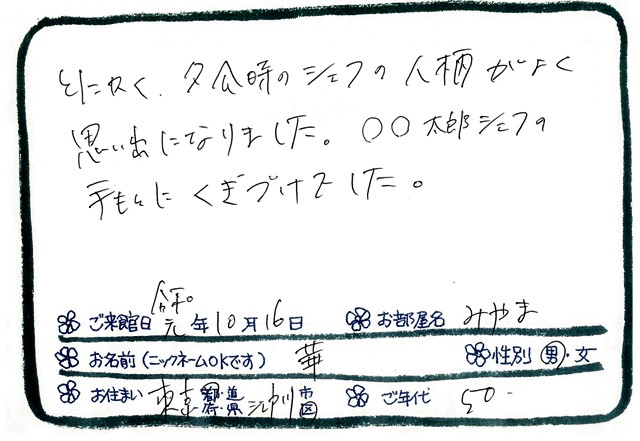 とにかく、夕食時のシェフの人柄がよく
思い出になりました。〇〇太郎シェフの
手もとにくぎづけでした。
令和
ご来館日 元年10月16日 お部屋名 みやま
お名前(ニックネームOKです) 華 性別 男・女
お住まい 東京 都・道・府・県 市区 ご年代 50